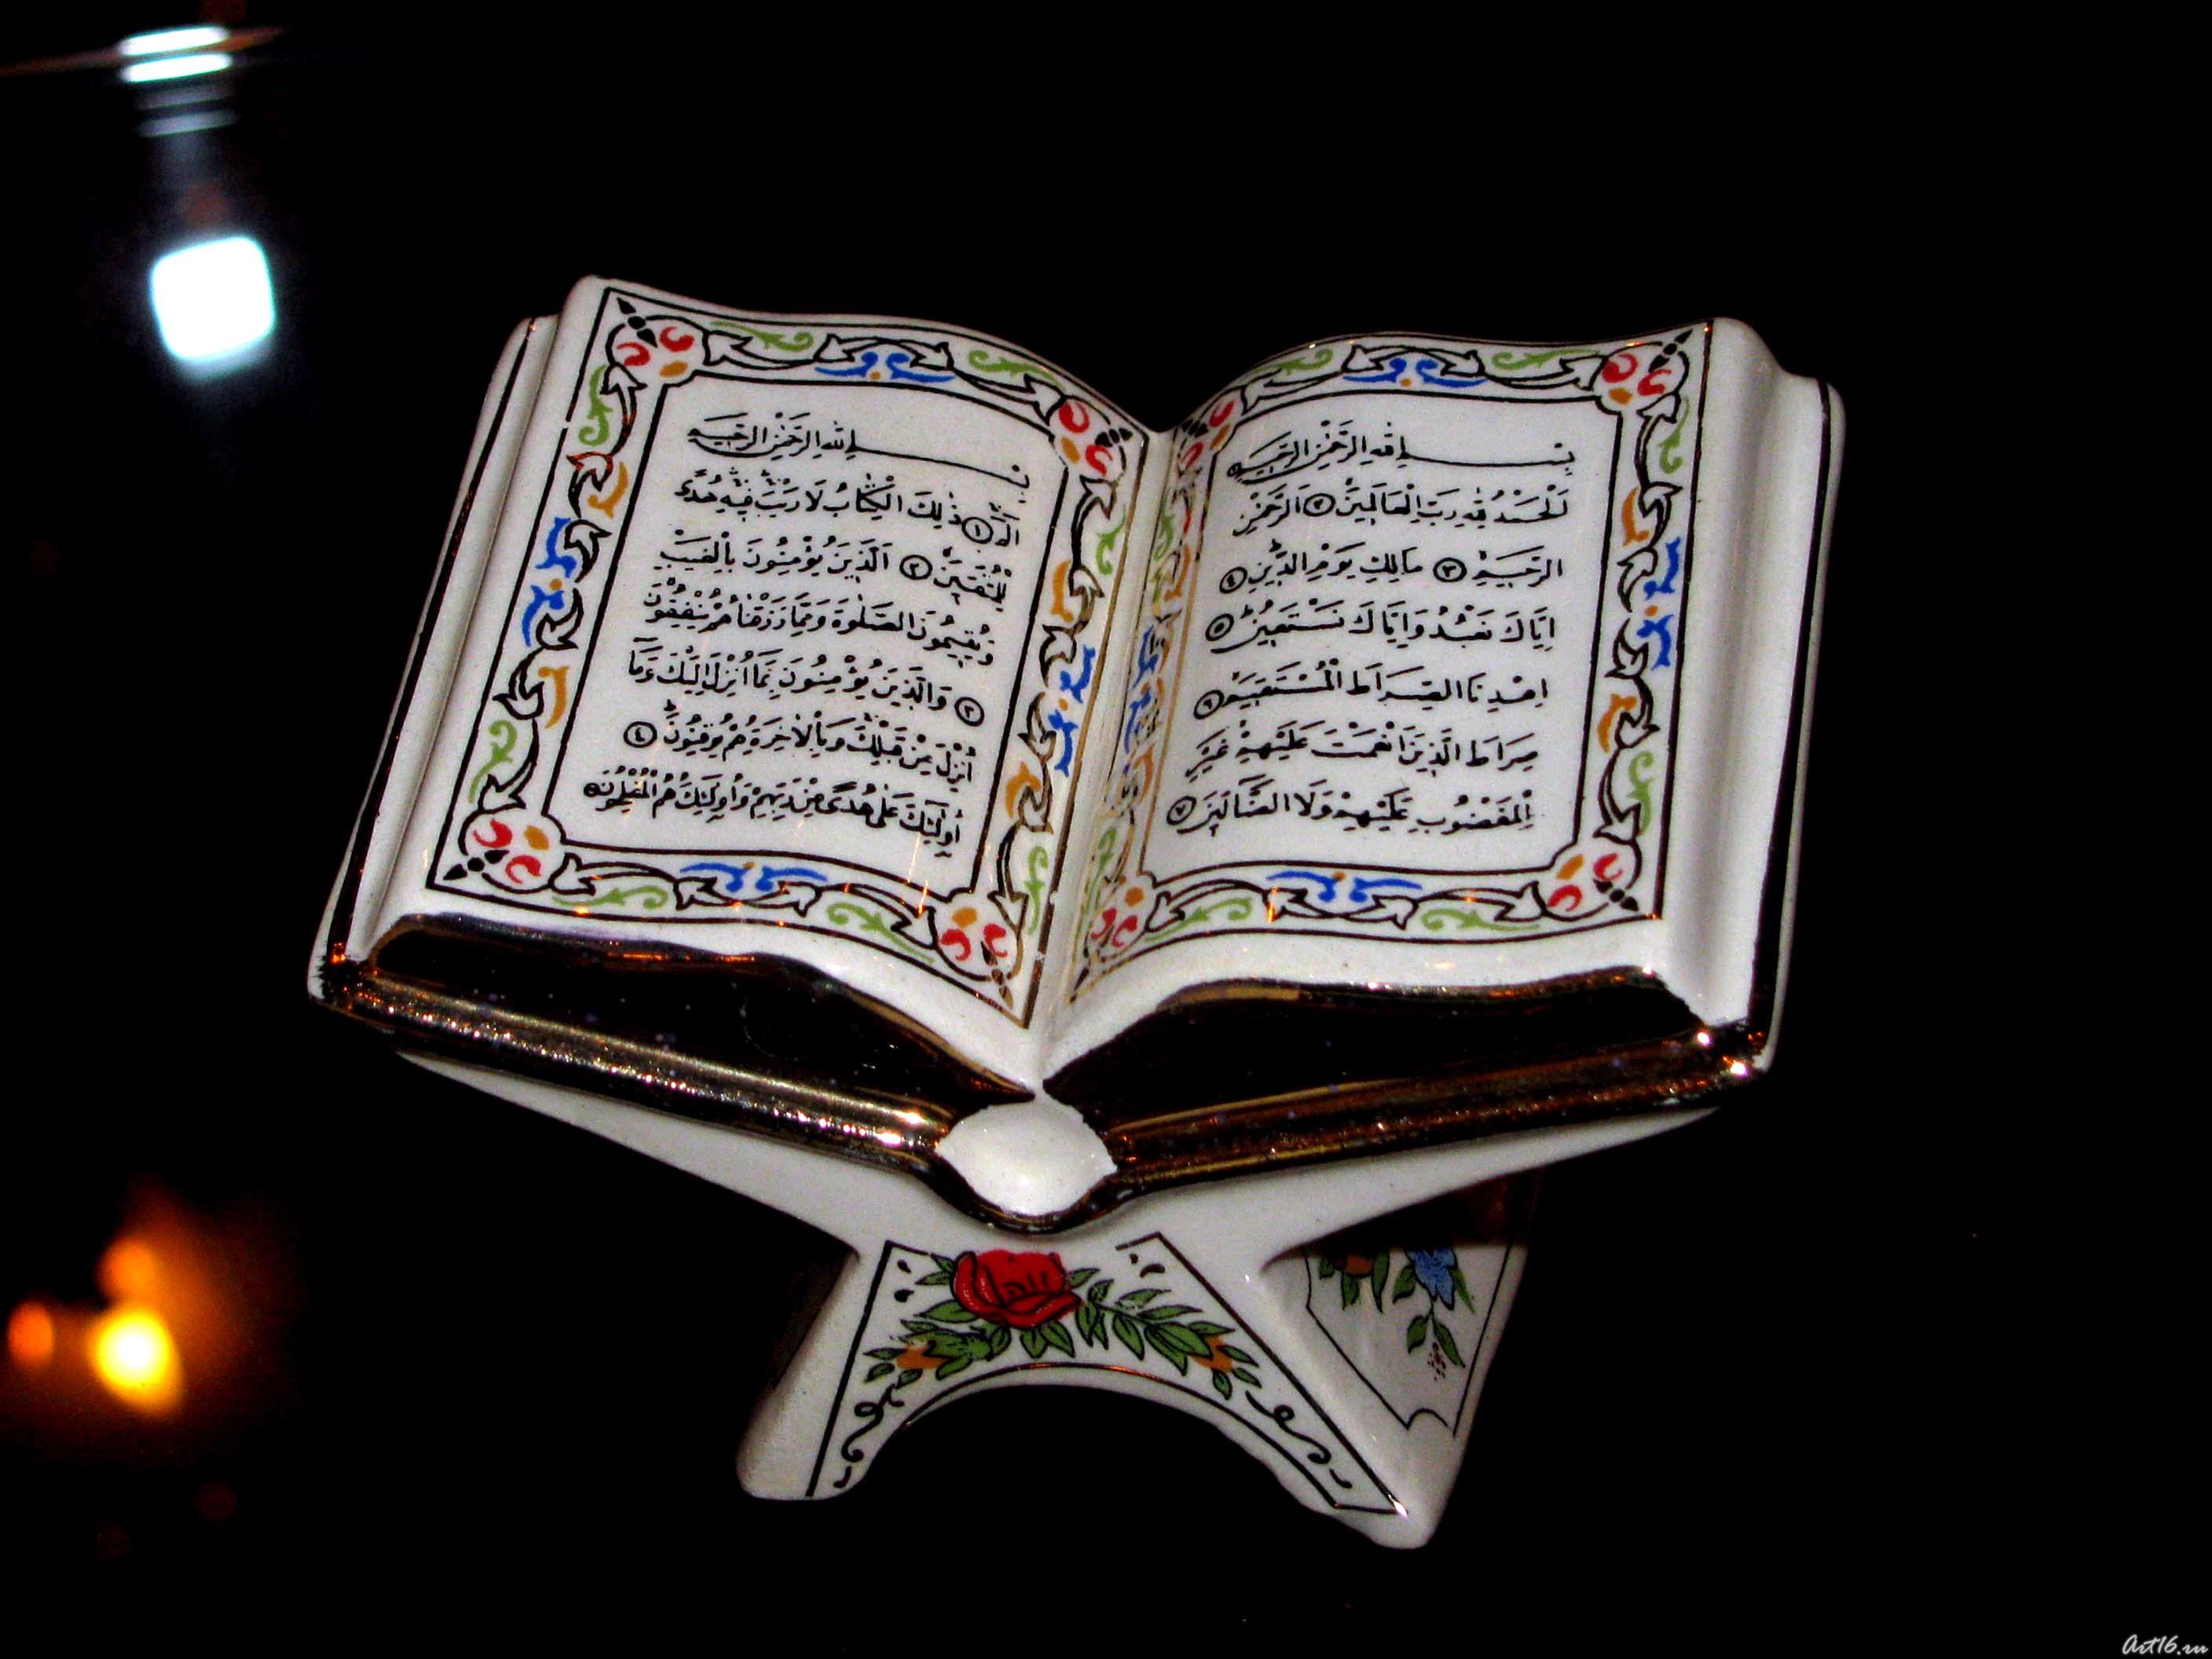 بِسْمِ اللهِ الرَّحْمٰنِ الرَّحِيمِ
اَلْحَمْدُ لِلّٰهِ رَبِّ الْعَالَمِينَ ﴿٢﴾ اَلرَّحْمٰنِ
الرَّحِيمِ ﴿٣﴾ مَالِكِ يَوْمِ الدِّينِ ﴿٤﴾
اِيَّاكَ نَعْبُدُ وَاِيَّاكَ نَسْتَعِينُ ﴿٥﴾
اِهْدِنَا الصِّرَاطَ الْمُسْتَقِيمَ ﴿٦﴾
صِرَاطَ الَّذِينَ اَنْعَمْتَ عَلَيْهِمْ غَيْرِ
الْمَغْضُوبِ عَلَيْهِمْ وَلَا الضَّالِّينَ ﴿٧﴾
بِسْمِ اللهِ الرَّحْمٰنِ الرَّحِيمِ
الٓمٓ ﴿١﴾ ذٰلِكَ الْكِتَابُ لَا رَيْبَ فِيهِ هُدًى
لِلْمُتَّقِينَ ﴿٢﴾ اَلَّذِينَ يُؤْمِنُونَ بِالْغَيْبِ
وَيُقِيمُونَ الصَّلٰوةَ وَمِمَّا رَزَقْنَاهُمْ يُنْفِقُونَ
﴿٣﴾ وَالَّذِينَ يُؤْمِنُونَ بِمَا اُنْزِلَ اِلَيْكَ وَمَا
اُنْزِلَ مِنْ قَبْلِكَ وَبِالْاٰخِرَةِ هُمْ يُوقِنُونَ ﴿٤﴾
اُولٰئِكَ عَلٰى هُدًى مِنْ رَبِّهِمْ وَاُولٰئِكَ هُمُ الْمُفْلِحُونَ ﴿٥﴾
Art16.ru